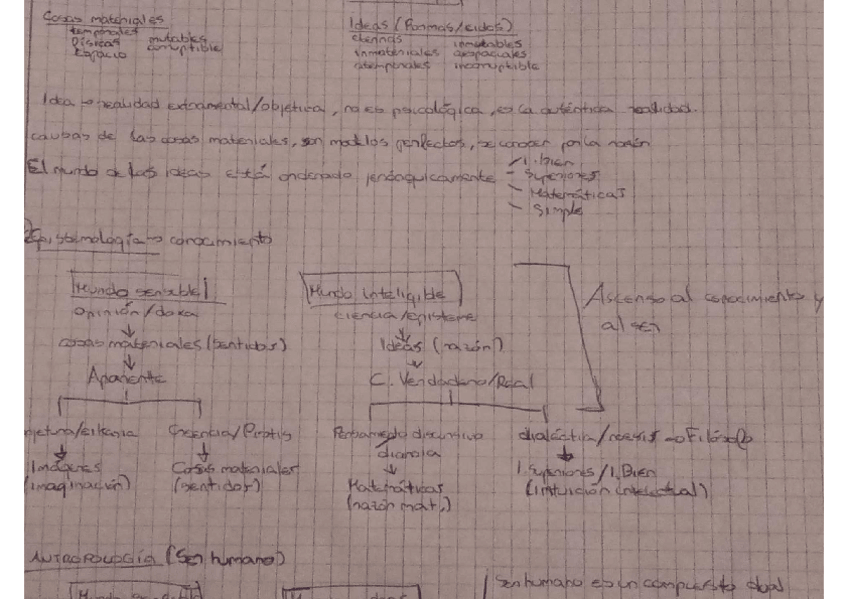 Cosas materiales
temporales mutables
físicas corruptible
Espacio
Ideas (Formas/eidos)
eternas inmutables
inmateriales aespaciales
atemporales incorruptible
Idea → realidad extramental/objetiva, no es psicológica, es la auténtica realidad.
causas de las cosas materiales, son modelos perfectos, se conocen por la razón
El mundo de las ideas está ordenado jerárquicamente
I. Bien
Superiores
Matemáticas
Simple
Epistemología → conocimiento
Mundo sensible
opinión/doxa
cosas materiales (sentidos)
Aparente
Creencia/Pistis
Imágenes Cosas materiales
(imaginación) (sentidos)
Mundo inteligible
ciencia/episteme
Ideas (razón)
C. Verdadero/Real
Pensamiento discursivo
dianoia
Matemáticas
(razón mat.)
dialéctica/noesis → Filósofo
I. Superiores/I. Bien
(intuición intelectual)
Ascenso al conocimiento y
al ser
ANTROPOLOGÍA (Ser humano)
Ser humano es un compuesto dual